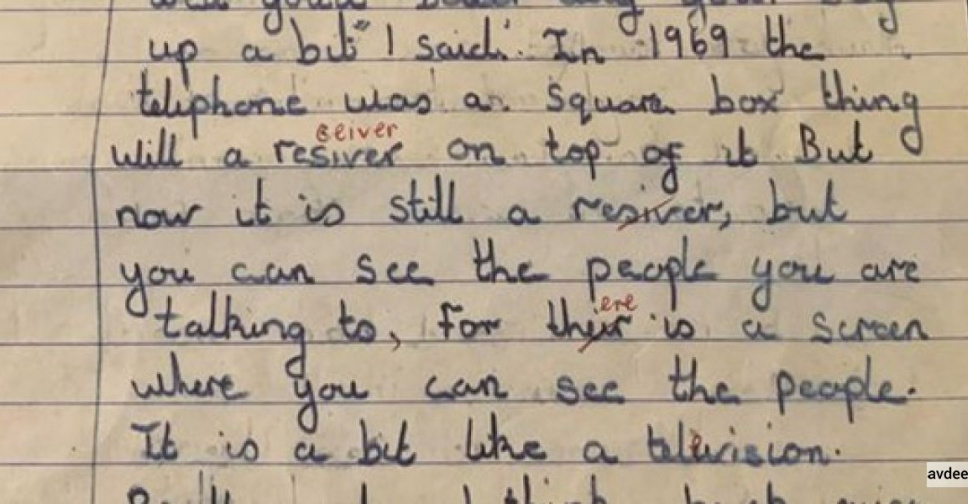 up a bit" I said. In 1969 the
teliphone was a square box thing
ceiver
will a resiver on top of it But
now it is still a resiver, but
you can see the people you are
ere
talking to, for their is a screen
where you can see the people.
It is a bit like a television.
avdee